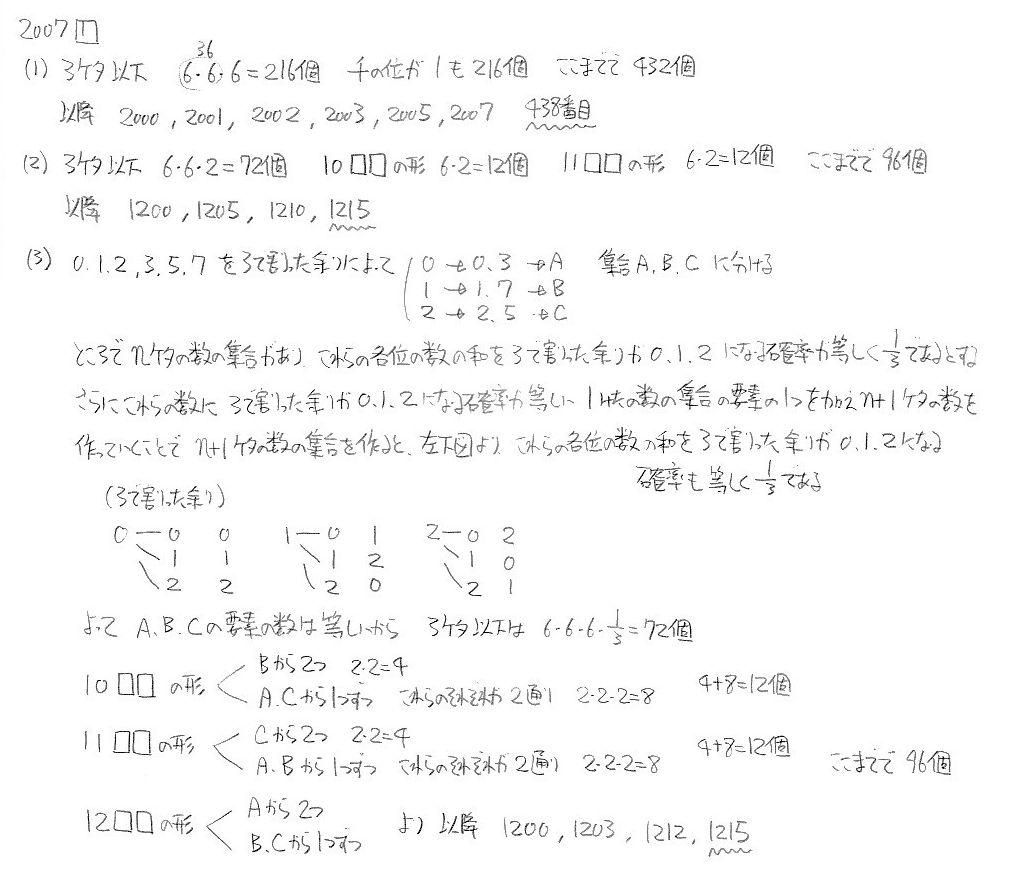 2007 1
(1) 3ケタ以下 6・6・6=216個 千の位が1も216個 ここまでで 432個
36
以降 2000, 2001, 2002, 2003, 2005, 2007 438番目
(2) 3ケタ以下 6・6・2=72個 10□□の形 6・2=12個 11□□の形 6・2=12個 ここまでで 96個
以降 1200, 1205, 1210, 1215
(3) 0.1.2,3.5.7 を3で割った余りによって 0→0.3→A 集合A.B.C に分ける
1→1.7→B
2→2.5→C
ところでnケタの数の集合があり これらの各位の数の和を3で割った余りが0.1.2になる確率が等しく1/3であるとする
さらにこれらの数に 3で割った余りが0.1.2になる確率が等しい 1ケタの数の集合の要素の1つを加えn+1ケタの数を
作っていくことで n+1ケタの数の集合を作ると、左下図より これらの各位の数の和を3で割った余りが0.1.2になる
確率も等しく1/3である
(3で割った余り)
0 0 0 1 0 1 2 0 2
1 1 1 2 1 0
2 2 2 0 2 1
よって A.B.Cの要素の数は等しいから 3ケタ以下は 6・6・6・1/3=72個
10□□の形 Bから2つ 2・2=4
A.Cから1つずつ これらのそれぞれが2通り 2・2・2=8 4+8=12個
11□□の形 Cから2つ 2・2=4
A.Bから1つずつ これらのそれぞれが2通り 2・2・2=8 4+8=12個 ここまでで 96個
12□□の形 Aから2つ
B.Cから1つずつ より 以降 1200, 1203, 1212, 1215